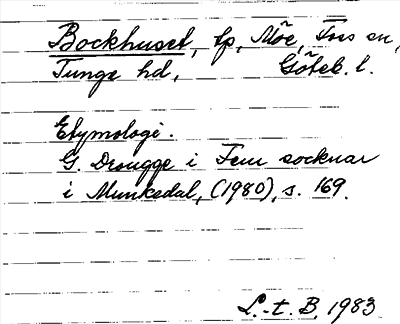 Bockhuset, tp, Möe, Foss sn,
Tunge hd, Göteb. l.
Etymologi.
G. Drougge i Fem socknar
i Munkedal, (1980), s. 169.
L.-t. B. 1983